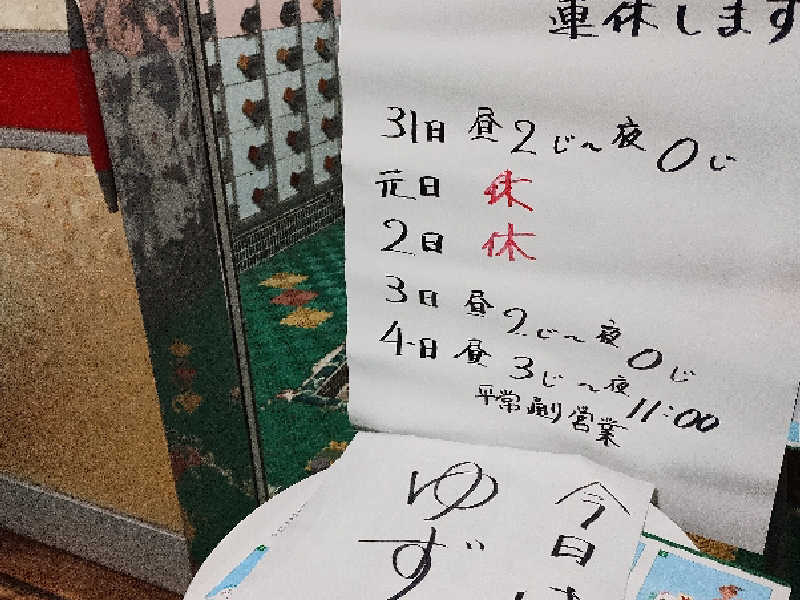 連休します
31日 昼2じ〜夜0じ
元日 休
2日 休
3日 昼2じ〜夜0じ
4日 昼3じ〜夜11:00
平常通り営業
今日は
ゆず